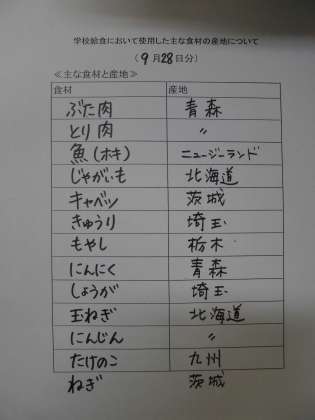 学校給食において使用した主な食材の産地について
(9月28日分)
≪主な食材と産地≫
食材 産地
ぶた肉 青森
とり肉 〃
魚(ホキ) ニュージーランド
じゃがいも 北海道
キャベツ 茨城
きゅうり 埼玉
もやし 栃木
にんにく 青森
しょうが 埼玉
玉ねぎ 北海道
にんじん 〃
たけのこ 九州
ねぎ 茨城